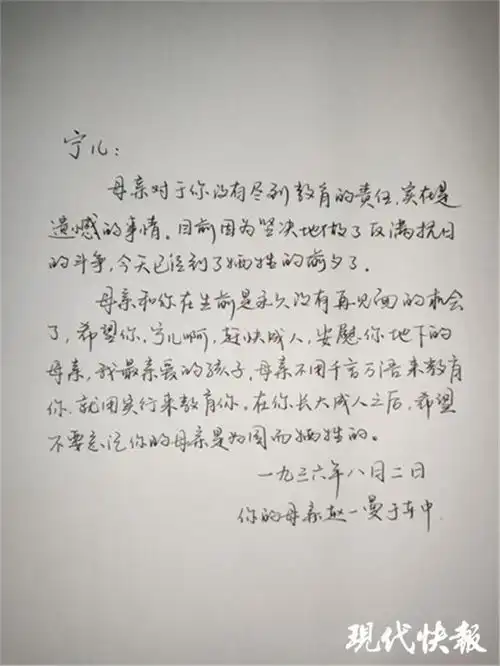 宁儿：
母亲对于你没有尽到教育的责任，实在是
遗憾的事情。目前因为坚决地做了反满抗日
的斗争，今天已经到了牺牲的前夕了。
母亲和你在生前是永久没有再见面的机会
了，希望你，宁儿啊，赶快成人，安慰你地下的
母亲，我最亲爱的孩子，母亲不用千言万语来教育
你，就用实行来教育你。在你长大成人之后，希望
不要忘记你的母亲是为国而牺牲的。
一九三六年八月二日
你的母亲赵一曼于车中
现代快报